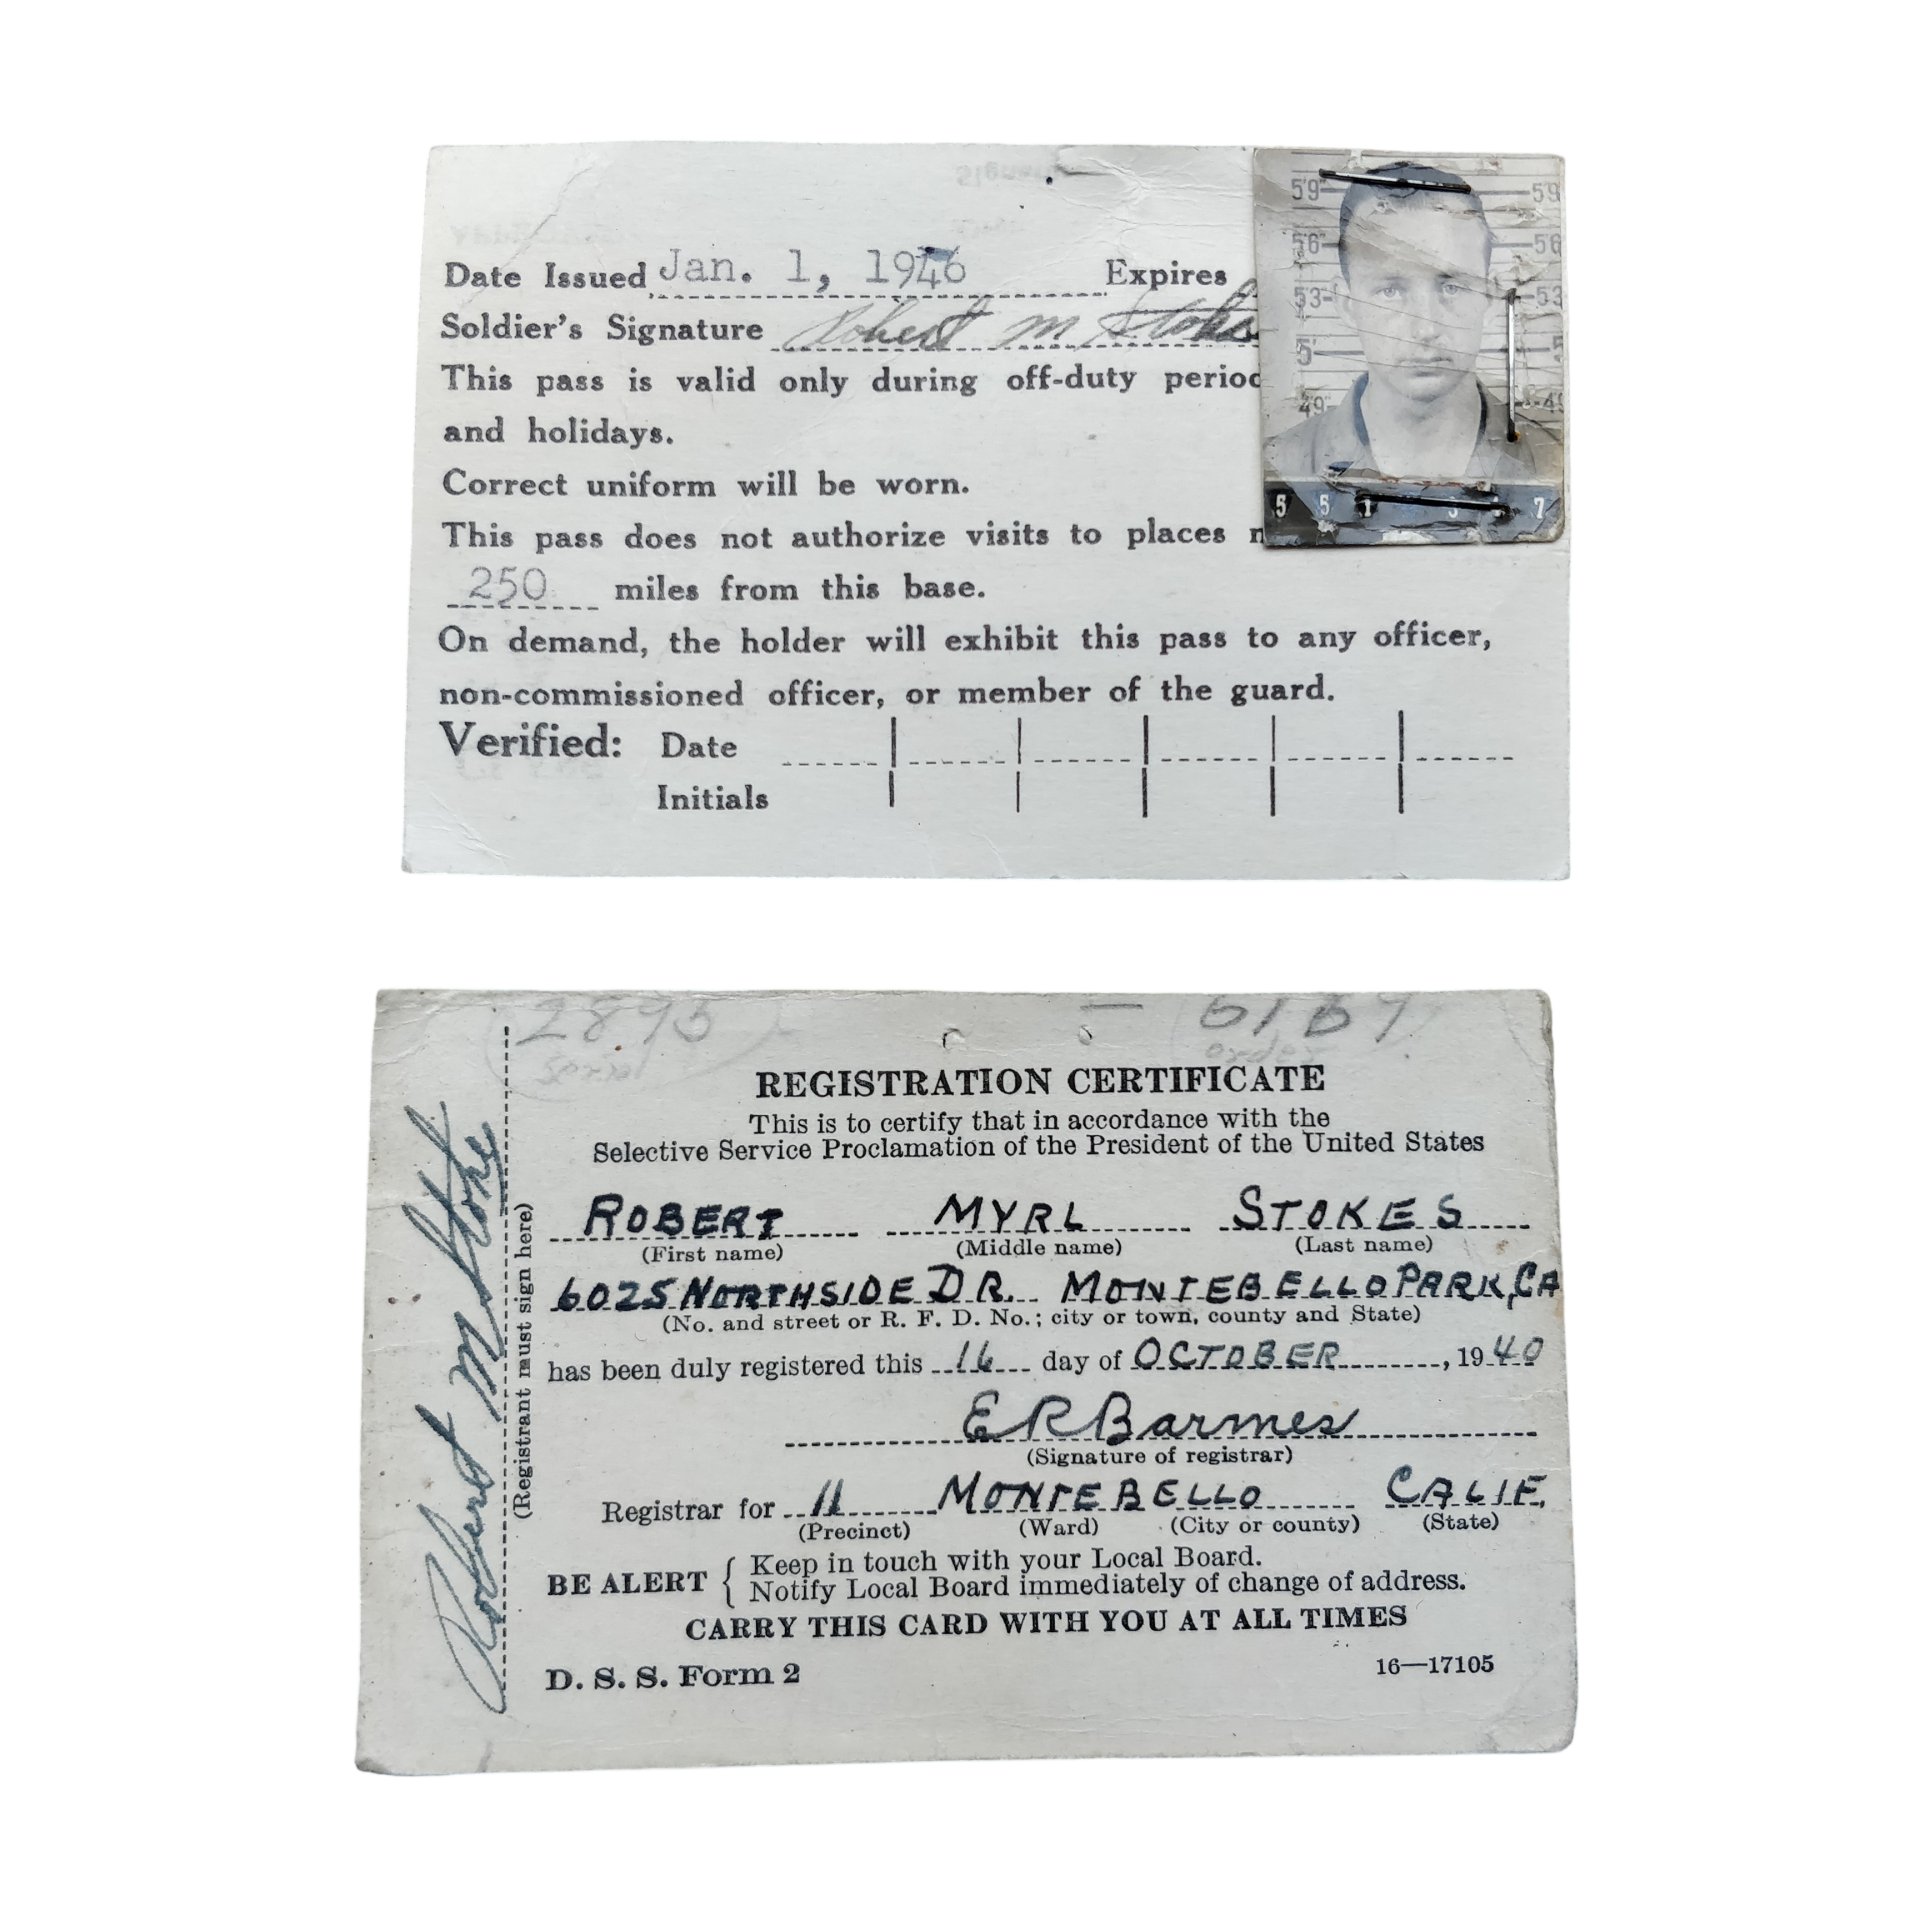 Date Issued Jan. 1, 1946 Expires
Soldier's Signature Robert M Stokes
This pass is valid only during off-duty perioc
and holidays.
Correct uniform will be worn.
This pass does not authorize visits to places
250 miles from this base.
On demand, the holder will exhibit this pass to any officer,
non-commissioned officer, or member of the guard.
Verified: Date
Initials
5'9" 59
5'6" 56
53 53
5' 5
49 49
5 5 1 3 7
2893 - 6169
serial order
REGISTRATION CERTIFICATE
This is to certify that in accordance with the
Selective Service Proclamation of the President of the United States
ROBERT MYRL STOKES
(First name) (Middle name) (Last name)
6025 NORTHSIDE DR. MONTEBELLO PARK, CA
(No. and street or R. F. D. No.; city or town, county and State)
has been duly registered this 16 day of OCTOBER, 1940
E R Barmes
(Signature of registrar)
Registrar for 11 MONTEBELLO CALIF.
(Precinct) (Ward) (City or county) (State)
BE ALERT { Keep in touch with your Local Board.
Notify Local Board immediately of change of address.
CARRY THIS CARD WITH YOU AT ALL TIMES
D. S. S. Form 2 16—17105
Robert M Stokes
(Registrant must sign here)